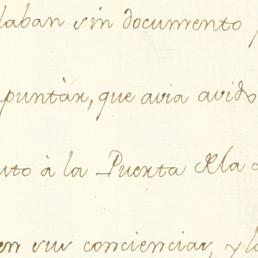 laban sin documento
puntàr, que avia avido
uto à la Puerta Rla
en sus conciencias, y